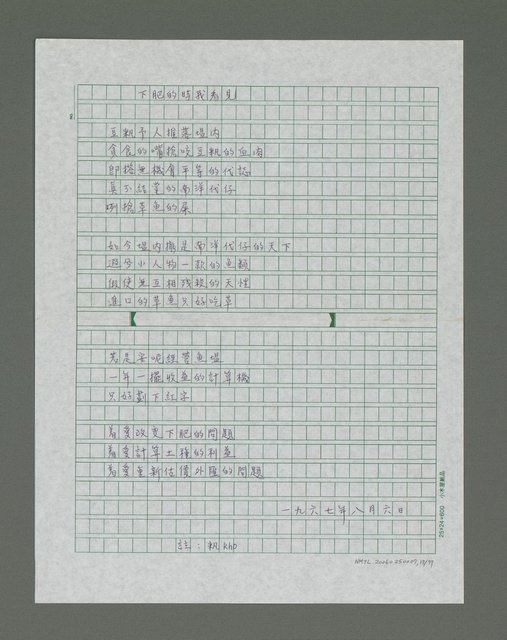 下肥的時我看見
豆粄予人推落塭內
貪食的嘴搶咬豆粄的血肉
即搭無機會平等的代誌
真不結黨的南洋代仔
咧搶草魚的屎
如今塭內攏是南洋代仔的天下
遮爾小人物一款的魚類
假使無互相殘殺的天性
進口的草魚只好吃草
若是安呢經營魚塭
一年一擺收益的計算機
只好劃下紅字
着愛改變下肥的問題
着愛計算土種的利益
着愛重新估價外種的問題
一九六七年八月六日
註：粄khò
25×24=600 小木屋製品
NMTL 20060250007, 18/79